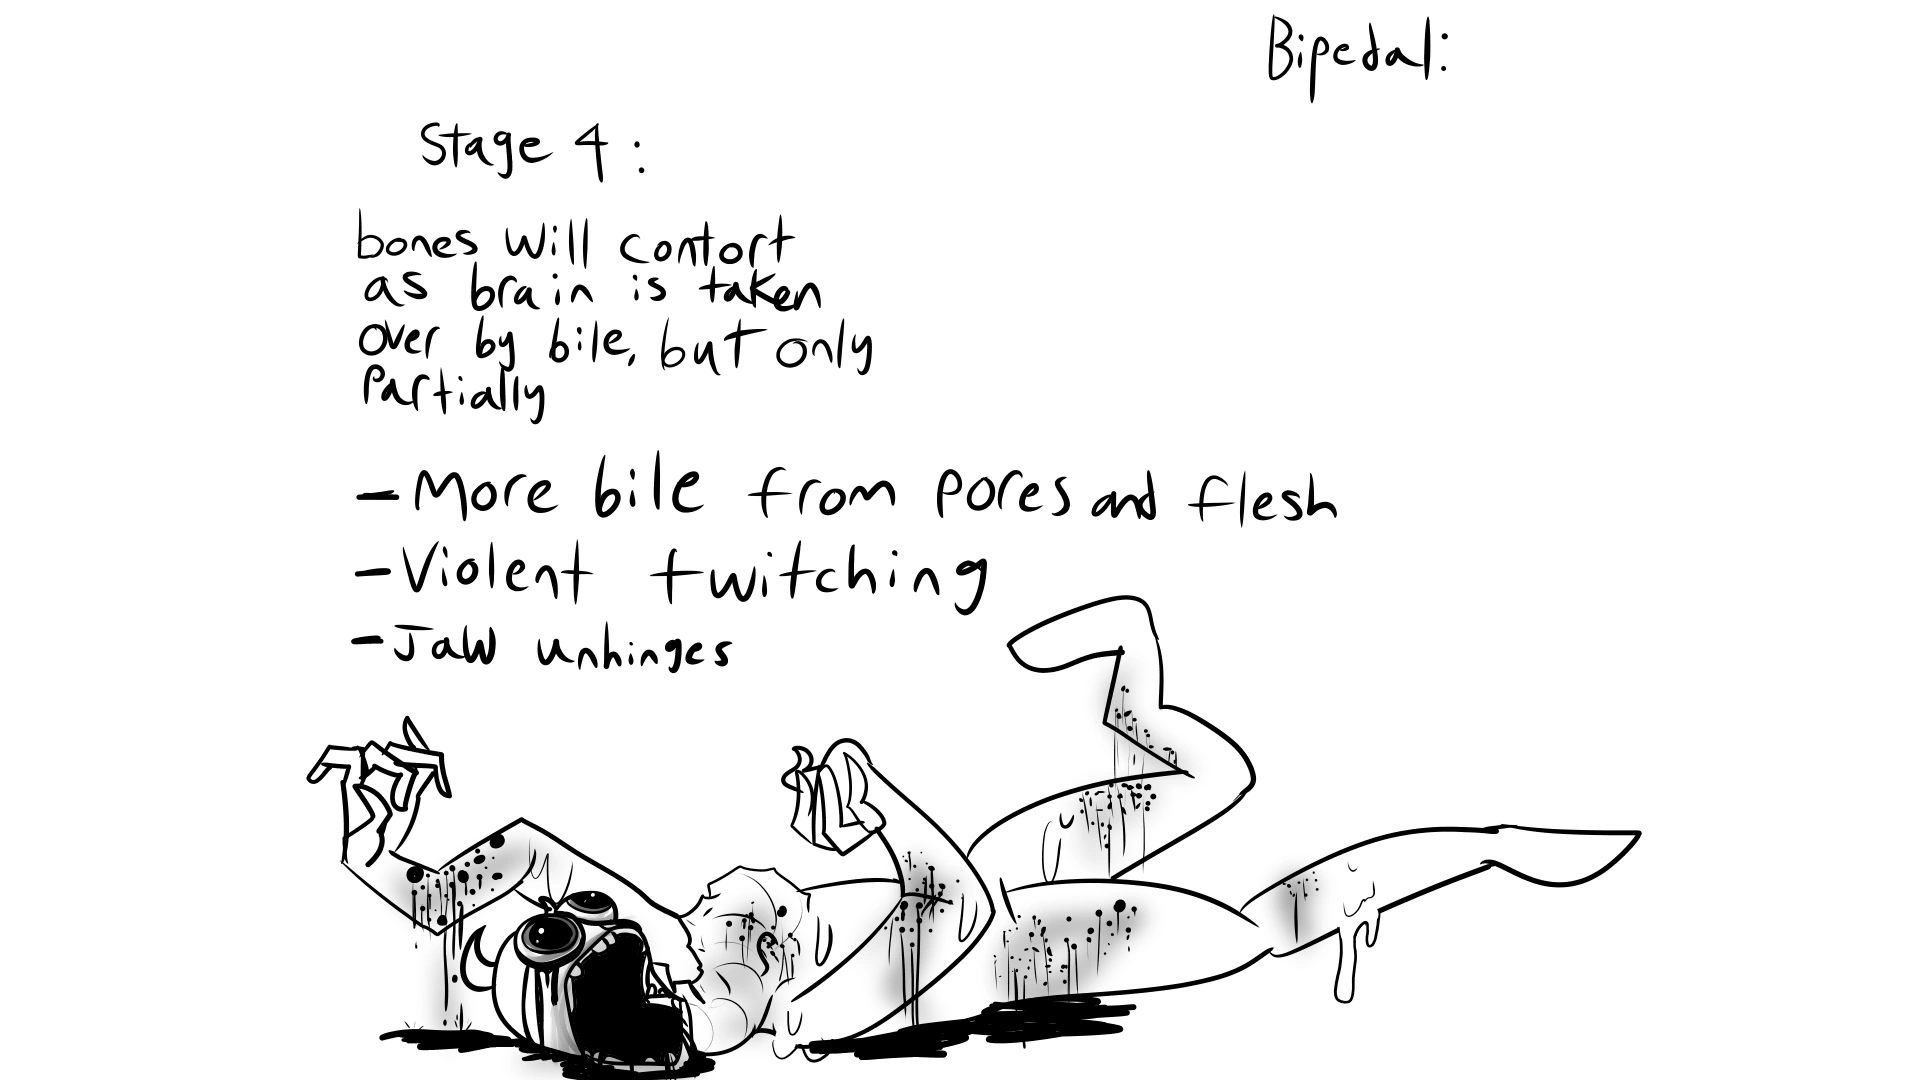 Bipedal:
Stage 4:
bones will contort
as brain is taken
over by bile, but only
Partially
- More bile from pores and flesh
- Violent twitching
- Jaw unhinges